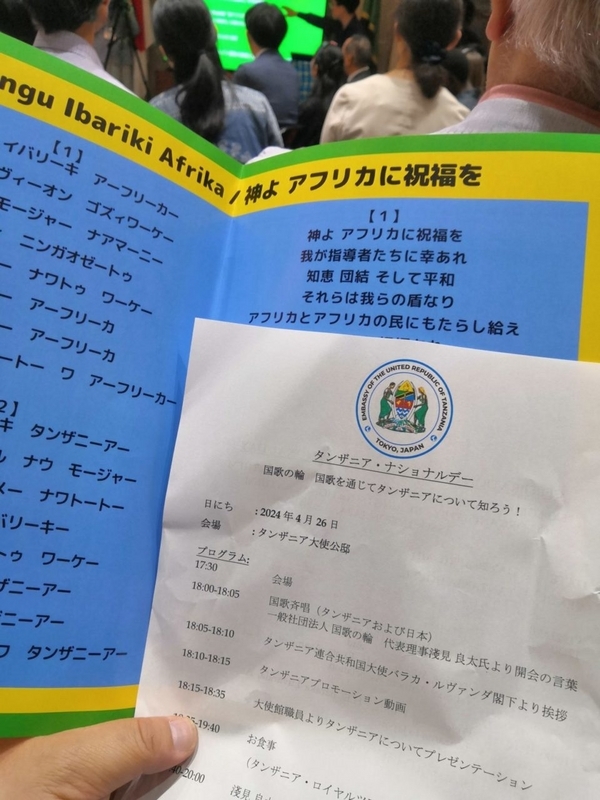 ngu Ibariki Afrika / 神よ アフリカに祝福を
【1】
イバリーキ アーフリーカー
ヴィーオン ゴズィワーケー
モージャー ナアマーニー
ニンガオゼートゥ
ナワトゥ ワーケー
アーフリーカ
アーフリーカ
トートー ワ アーフリーカー
2】
キ タンザニーアー
ル ナウ モージャー
メー ナワトートー
バリーキー
トゥ ワーケー
ザニーアー
ザニーアー
ワ タンザニーアー
【1】
神よ アフリカに祝福を
我が指導者たちに幸あれ
知恵 団結 そして平和
それらは我らの盾なり
アフリカとアフリカの民にもたらし給え
EMBASSY OF THE UNITED REPUBLIC OF TANZANIA
TOKYO, JAPAN
タンザニア・ナショナルデー
国歌の輪 国歌を通じてタンザニアについて知ろう！
日にち : 2024 年 4 月 26 日
会場 : タンザニア大使公邸
プログラム:
17:30 会場
18:00-18:05 国歌斉唱（タンザニアおよび日本）
18:05-18:10 一般社団法人 国歌の輪 代表理事淺見 良太氏より開会の言葉
18:10-18:15 タンザニア連合共和国大使バラカ・ルヴァンダ閣下より挨拶
18:15-18:35 タンザニアプロモーション動画
大使館職員よりタンザニアについてプレゼンテーション
-19:40 お食事
（タンザニア・ロイヤルツ
-20:00 淺見 良